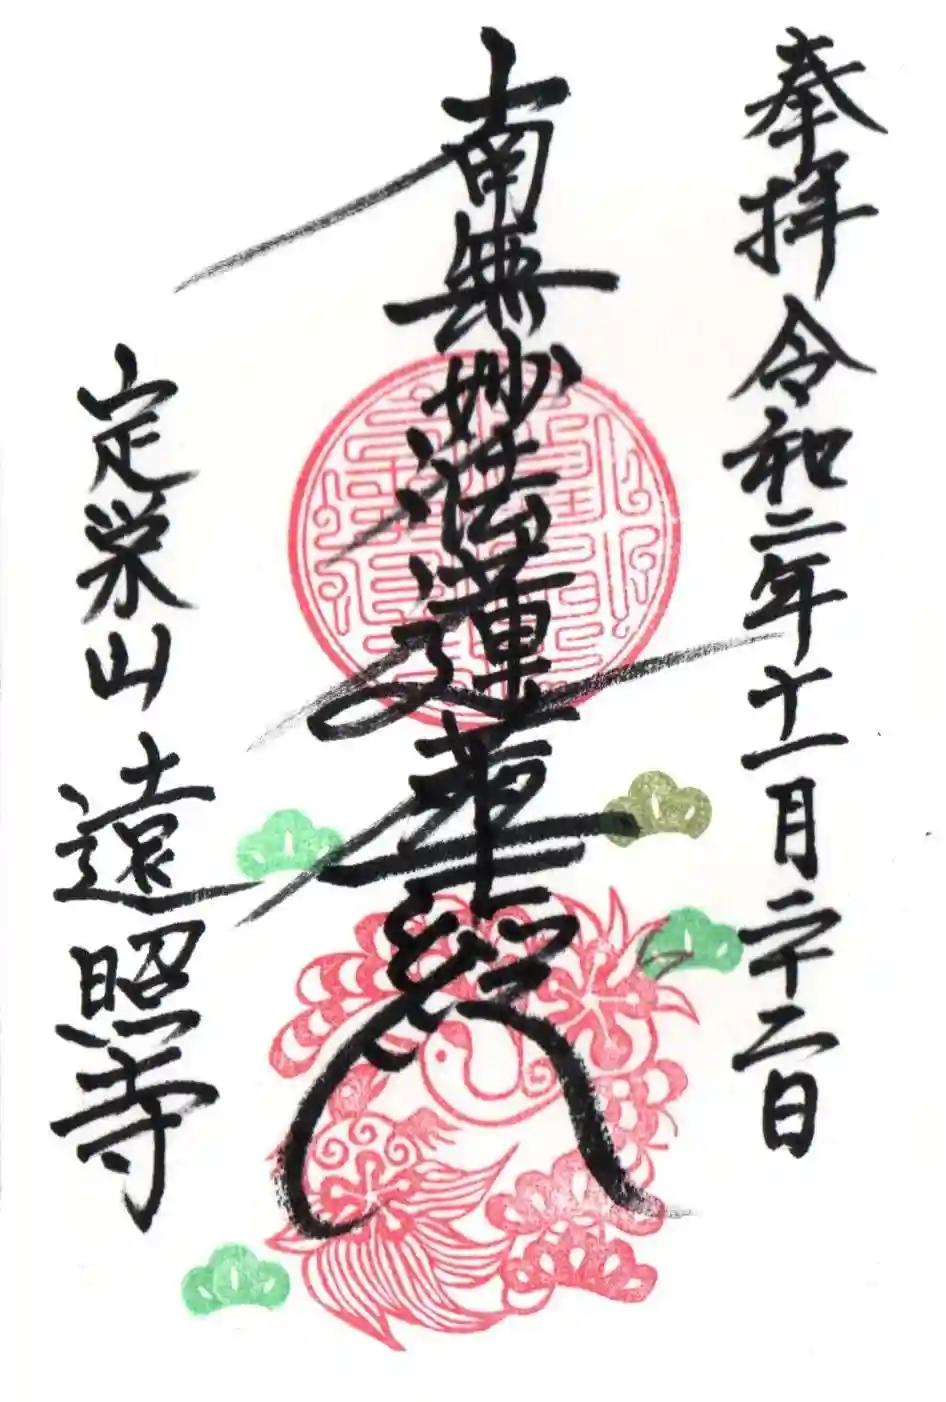 奉拝 令和二年十一月二十二日
南無妙法蓮華経
定栄山 遠照寺